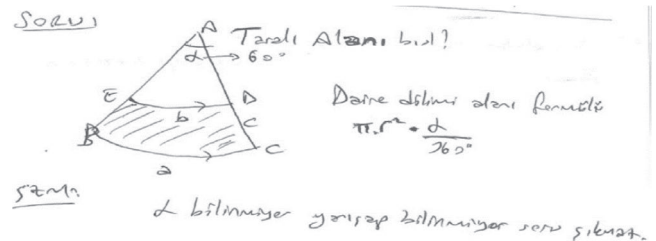 SORU
A Taralı Alanı bul?
α → 60°
E D
b
Daire dilimi alanı formülü
c
π.r² . α/360°
B C
a
ÇZM:
α bilinmiyor yarıçap bilinmiyor soru çıkmaz.